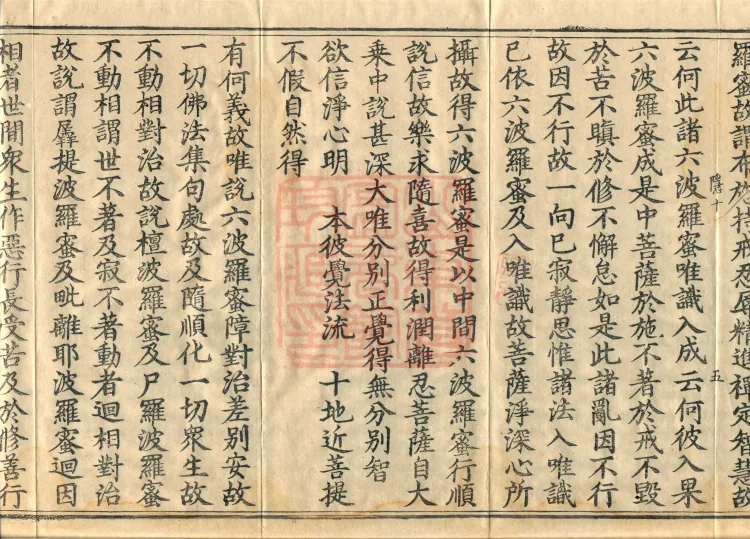 羅蜜故謂布施持戒忍辱精進禪定智慧故
五
云何此諸六波羅蜜唯識入成 云何彼入果
六波羅蜜成是中菩薩於施不著於戒不毀
於苦不瞋於修不懈怠如是此諸亂因不行
故因不行故一向已寂靜思惟諸法入唯識
已依六波羅蜜及入唯識故菩薩淨深心所
攝故得六波羅蜜是以中間六波羅蜜行順
說信故樂求隨喜故得利潤離忍菩薩自大
乘中說甚深大唯分別正覺得無分別智
欲信淨心明 本彼覺法流 十地近菩提
不假自然得
有何義故唯說六波羅蜜障對治差別安故
一切佛法集句處故及隨順化一切衆生故
不動相對治故說檀波羅蜜及尸羅波羅蜜
不動相謂世不著及寂不著動者迴相對治
故說謂羼提波羅蜜及毗離耶波羅蜜迴因
相者世間衆生作惡行長受苦及於修善行